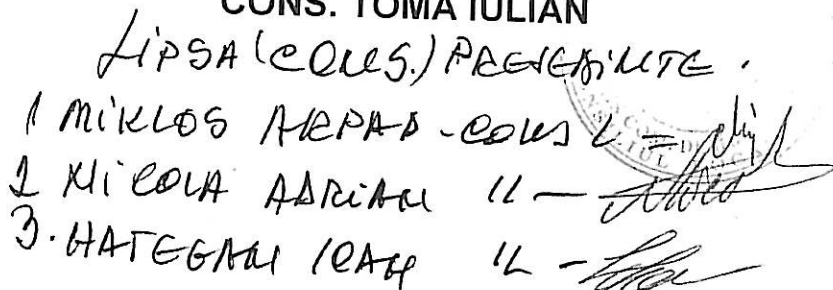 CONS. TOMA IULIAN
LIPSA (CONS.) PREȘEDINTE.
1 MIKLOS ARPAD - CONS L =
2 NICOLA ADRIAN 11 -
3. HATEGAN IOAN 1L -